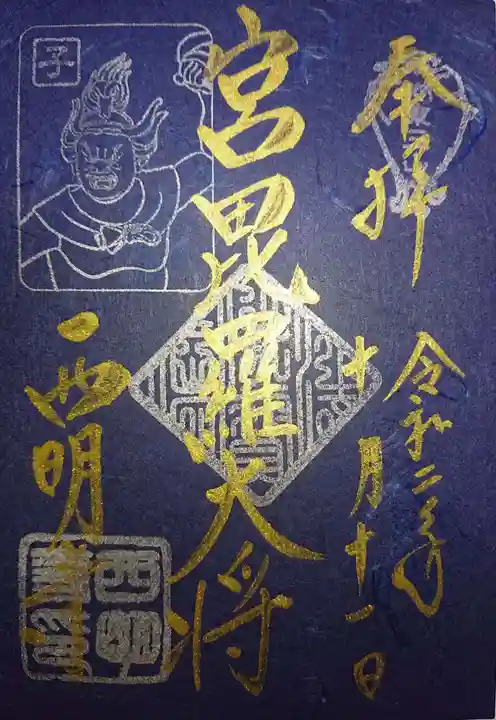 奉拝
令和二年
十月十一日
宮毘羅大将
西明寺
子
西明